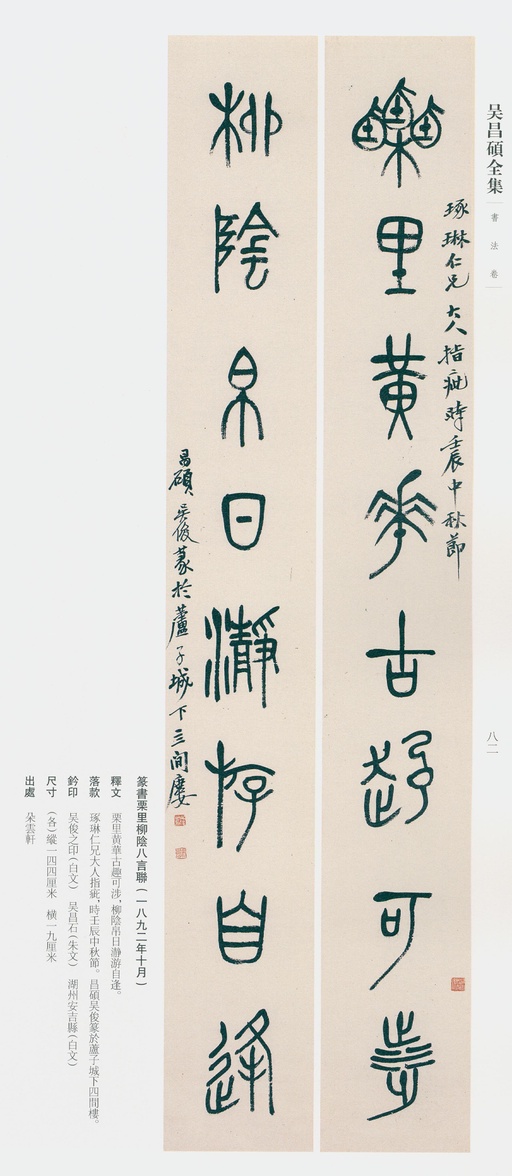 吴昌碩全集
書法卷
八二
琢琳仁兄大人指疵時壬辰中秋節
栗里黃華古趣可涉
柳陰帛日瀞游自逢
昌碩吳俊篆於蘆子城下三間廔
篆書栗里柳陰八言聯(一八九二年十月)
釋文 栗里黃華古趣可涉,柳陰帛日瀞游自逢。
落款 琢琳仁兄大人指疵,時壬辰中秋節。昌碩吴俊篆於蘆子城下四間樓。
鈐印 吴俊之印(白文) 吴昌石(朱文) 湖州安吉縣(白文)
尺寸 (各)縱一四四厘米 橫一九厘米
出處 朵雲軒